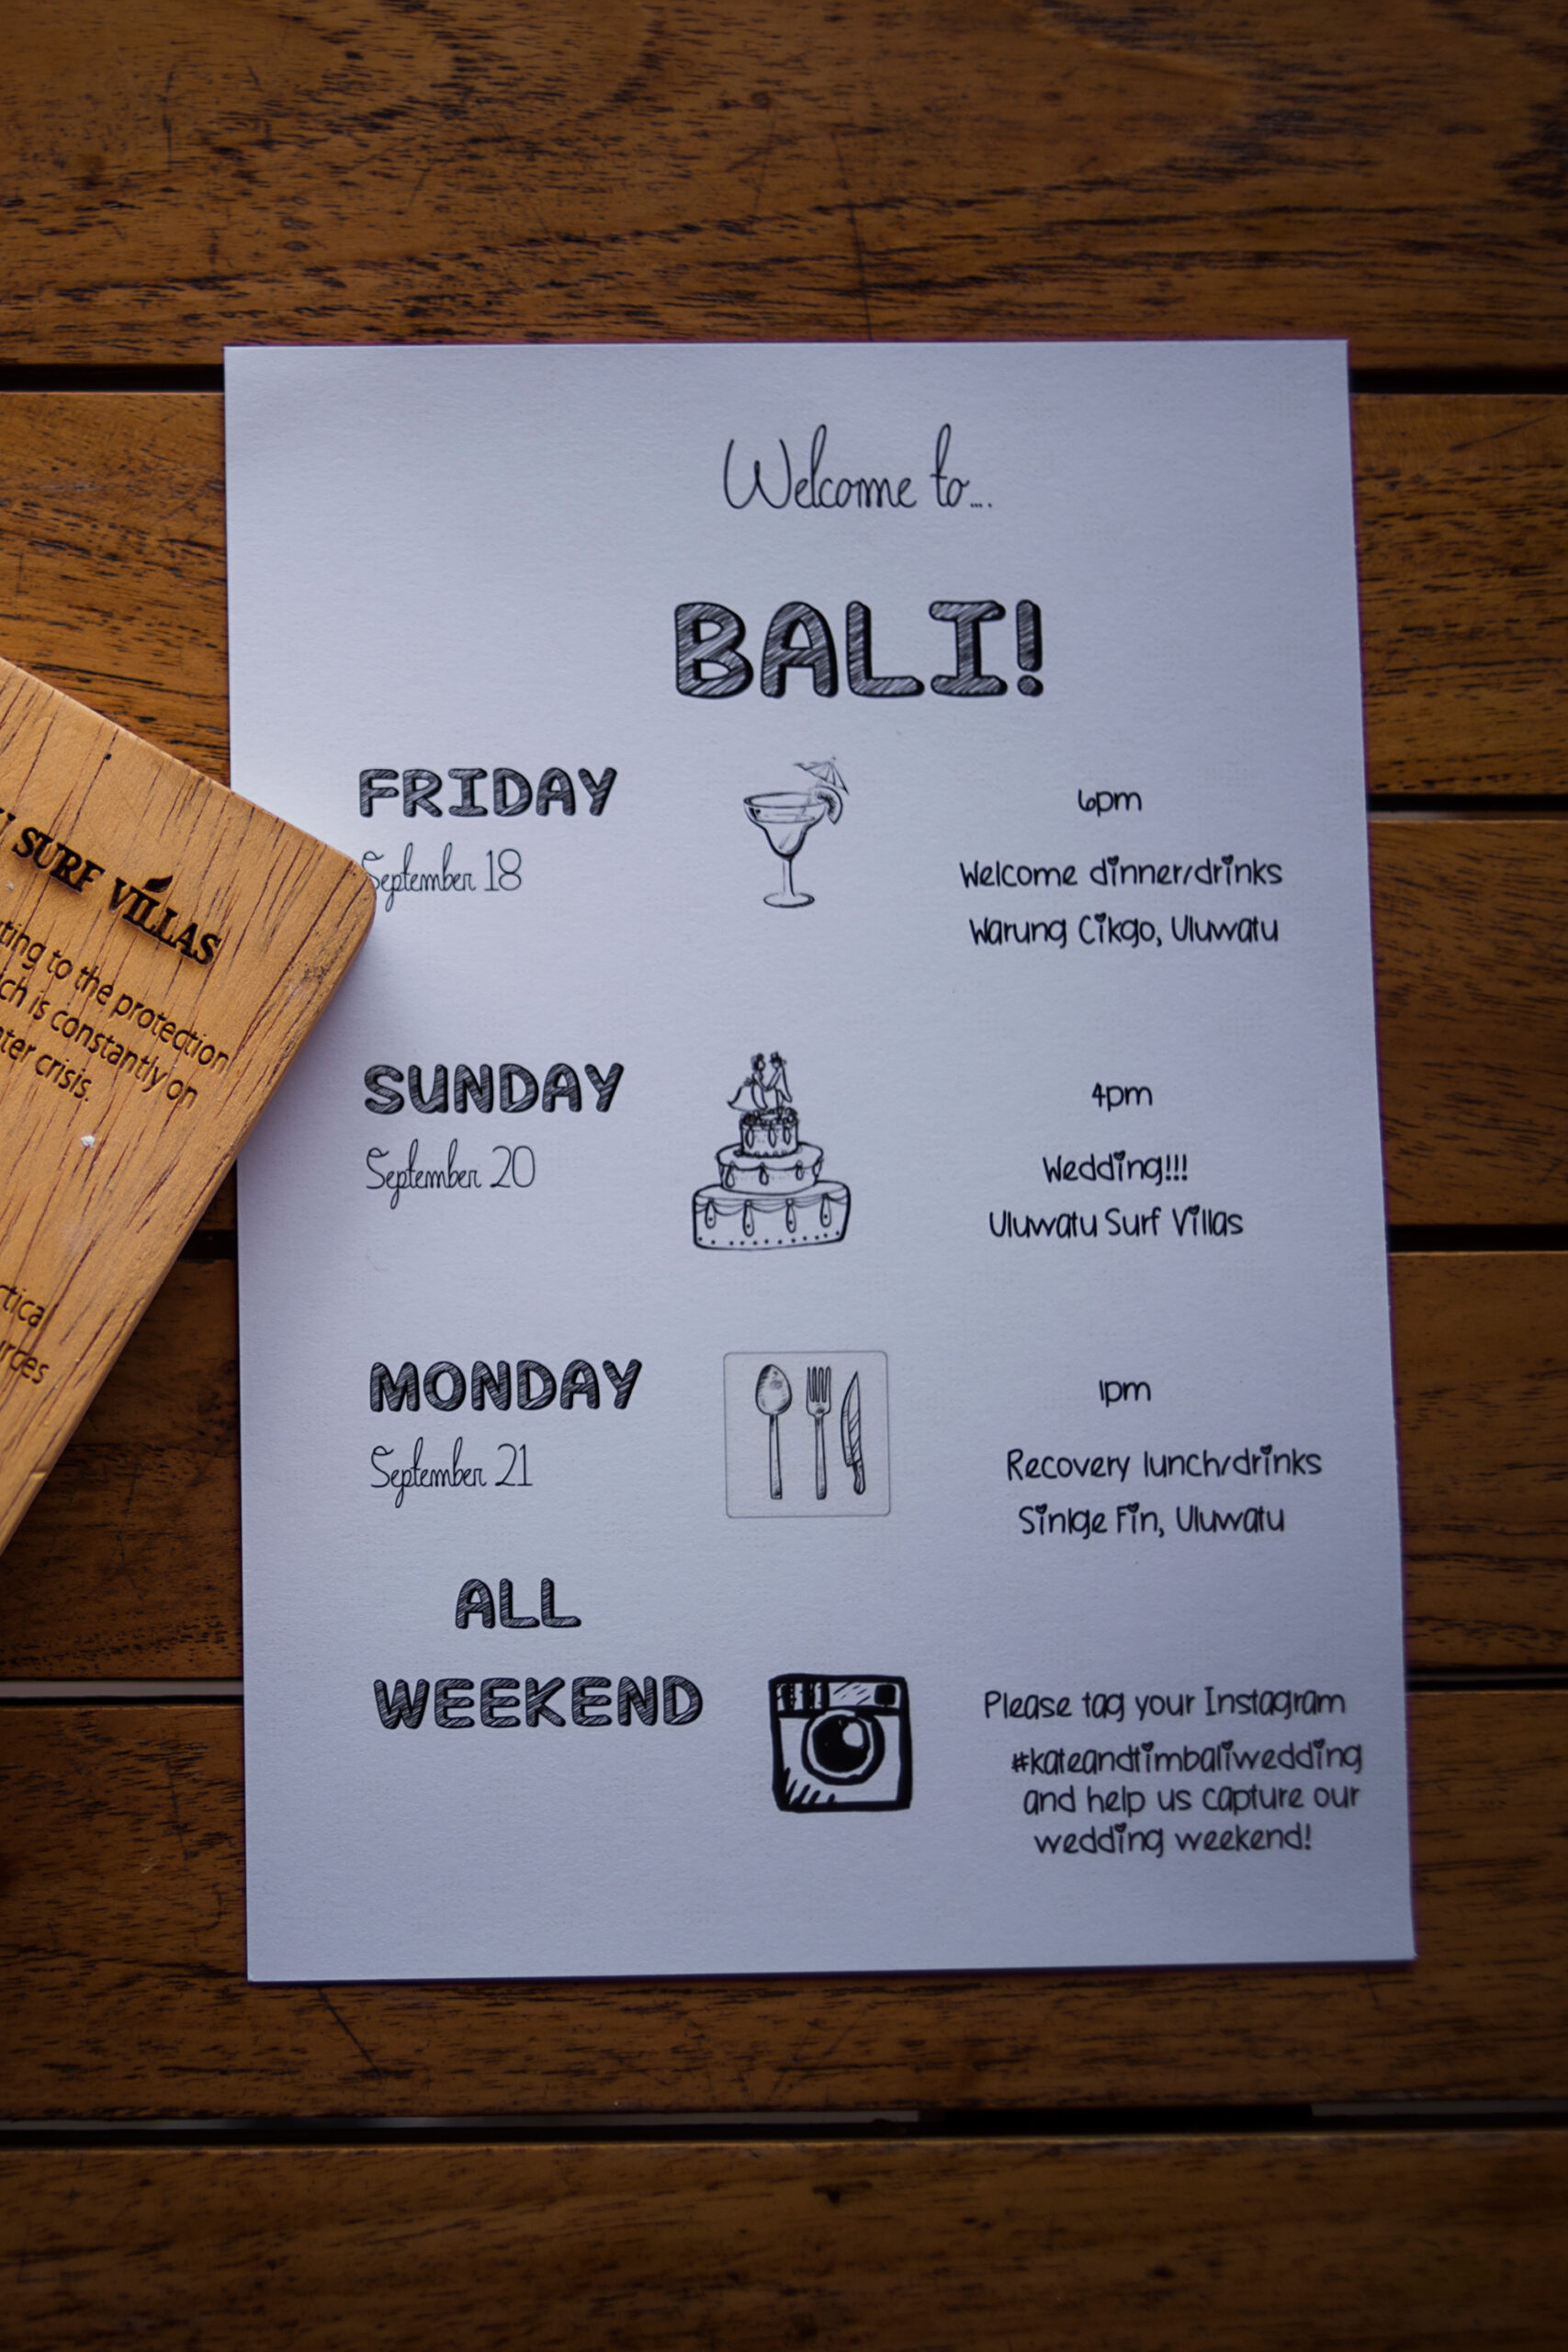 Welcome to...
BALI!
FRIDAY
September 18
6pm
Welcome dinner/drinks
Warung Cikgo, Uluwatu
SUNDAY
September 20
4pm
Wedding!!!
Uluwatu Surf Villas
MONDAY
September 21
1pm
Recovery lunch/drinks
Sinlge Fin, Uluwatu
ALL
WEEKEND
Please tag your Instagram
#kateandtimbaliwedding
and help us capture our
wedding weekend!
SURF VILLAS
to the protection
is constantly on
crisis.